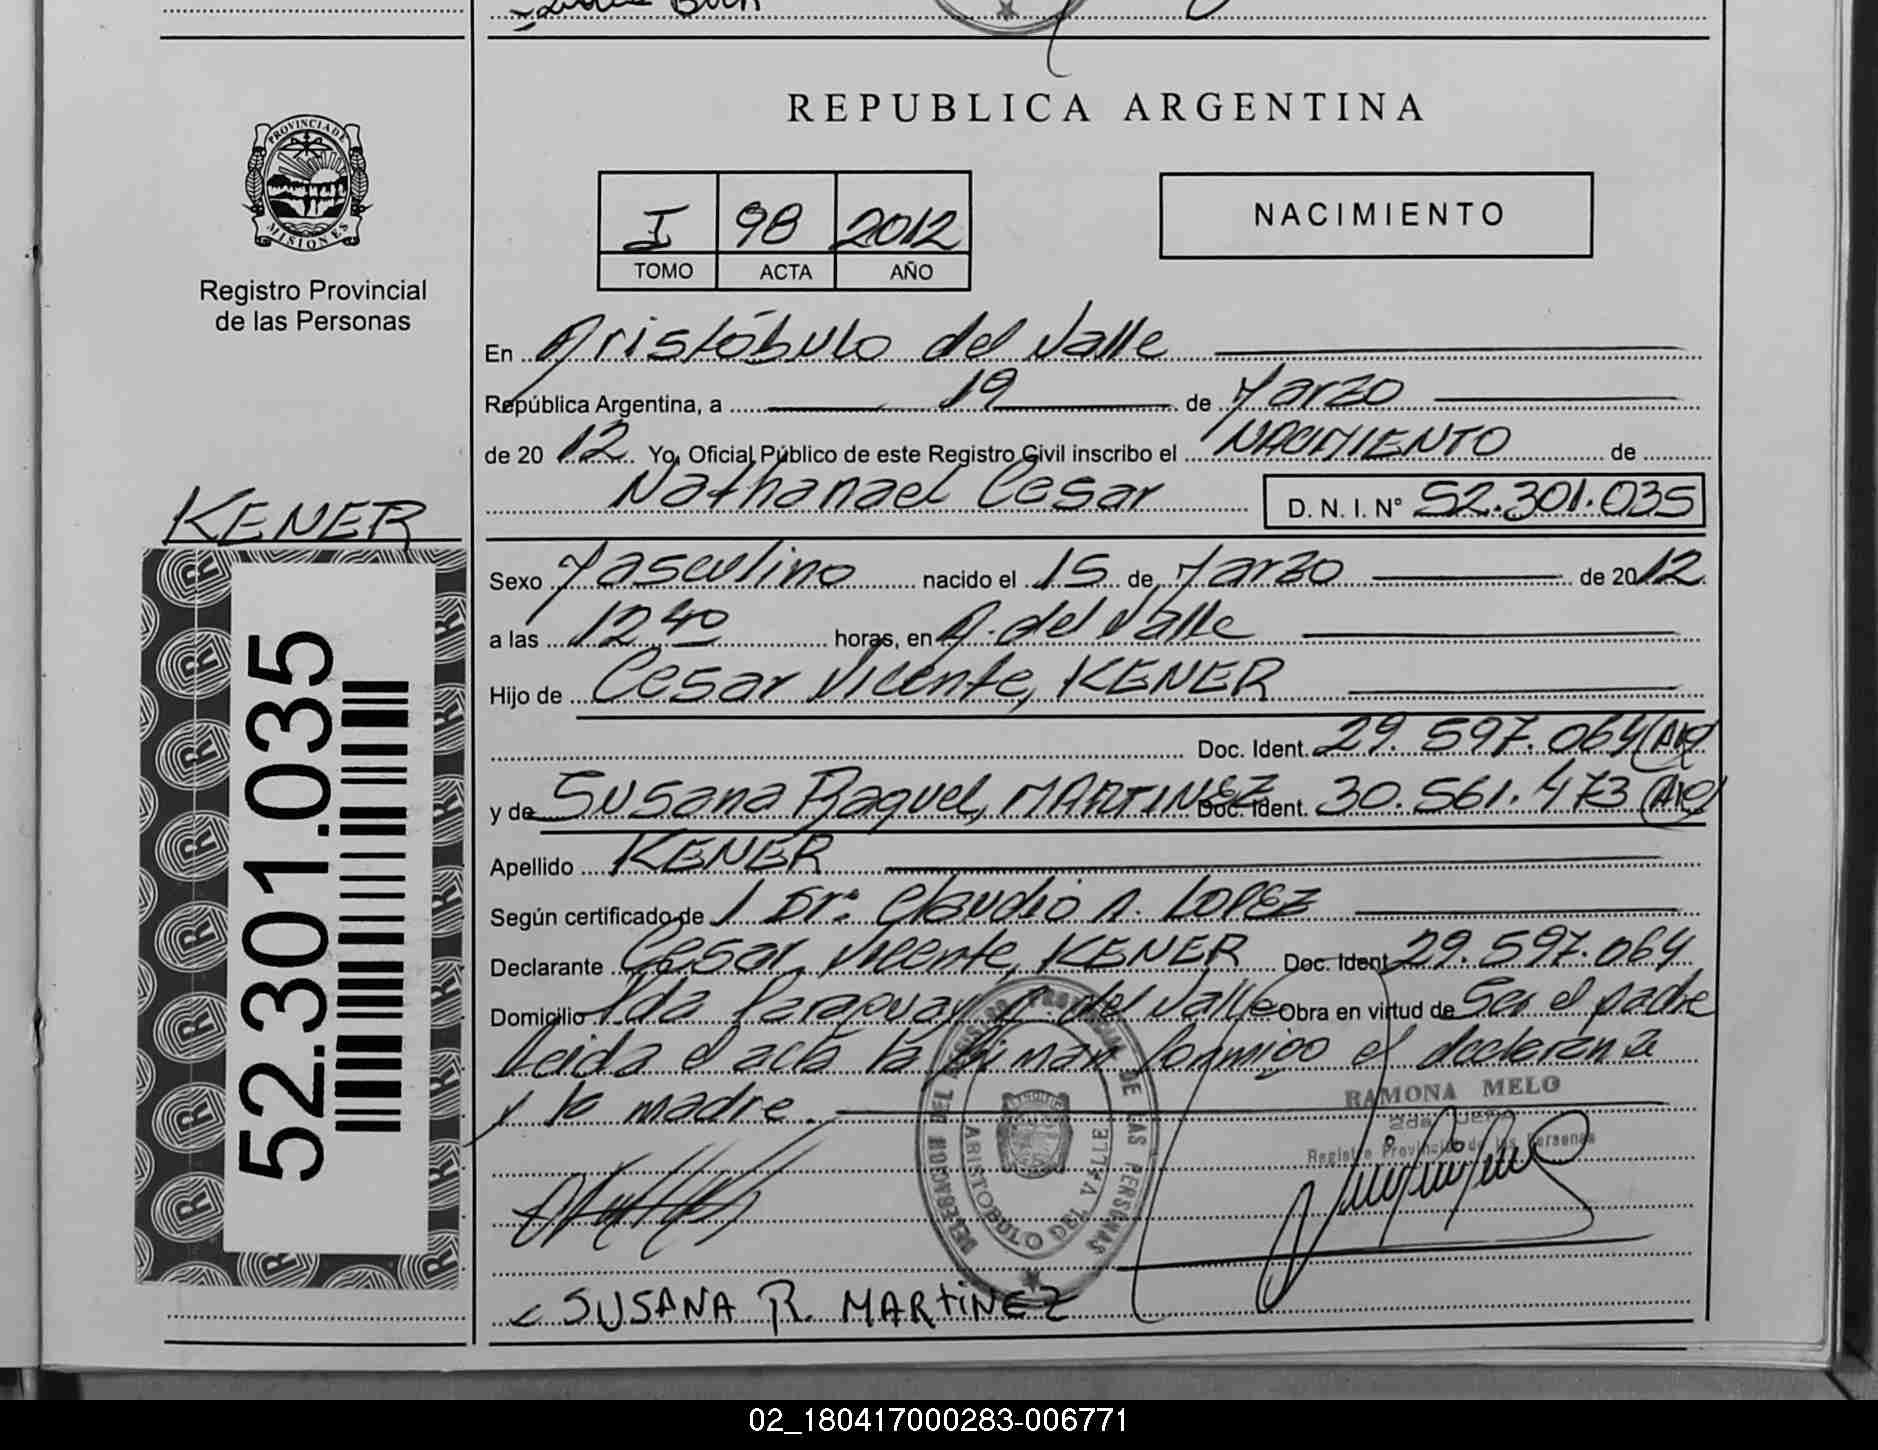 REPUBLICA ARGENTINA
PROVINCIA DE
MISIONES
Registro Provincial
de las Personas
I 98 2012
TOMO ACTA AÑO
NACIMIENTO
En Aristóbulo del Valle
República Argentina, a 19 de Marzo
de 2012 Yo, Oficial Público de este Registro Civil inscribo el NACIMIENTO de
Nathanael Cesar D. N. I. N° 52.301.035
KENER
52.301.035
Sexo Masculino nacido el 15 de Marzo de 2012
a las 12 40 horas, en A. del Valle
Hijo de Cesar Vicente, KENER
Doc. Ident. 29.597.064 (A19)
y de Susana Raquel, MARTINEZ Doc. Ident. 30.561.473 (A19)
Apellido KENER
Según certificado de 1 Dr. Claudio A. LOPEZ
Declarante Cesar Vicente, KENER Doc. Ident 29.597.064
Domicilio Paraguay A. del Valle Obra en virtud de Ser el padre
Leida el acta la firman conmigo el
y la madre.
RAMONA MELO
Registro Provincial de las Personas
PROVINCIAL DE LAS PERSONAS
ARISTOBULO DEL VALLE
SUSANA R. MARTINEZ
02_180417000283-006771